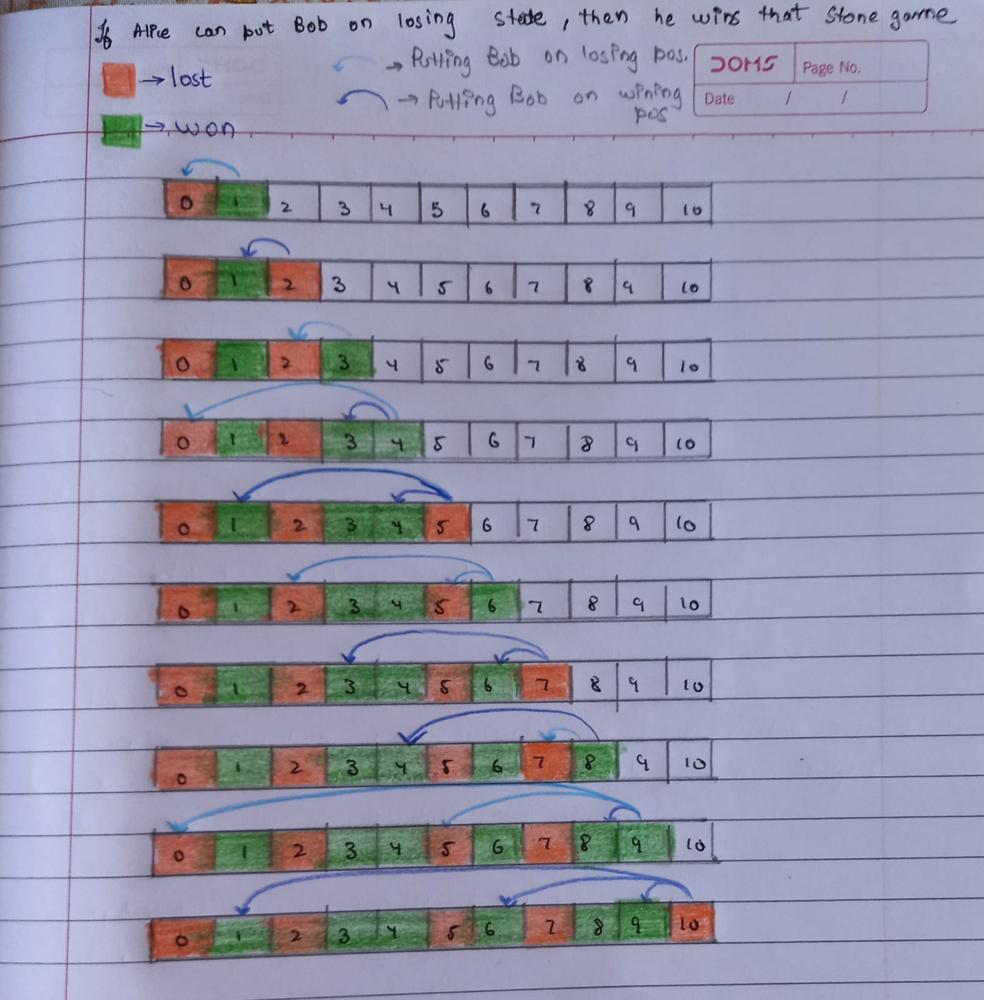 If Alice can put Bob on losing state, then he wins that Stone game
→ Putting Bob on losing pos.
DOMS Page No.
→ lost
→ Putting Bob on wining pos
Date / /
→ won
0 1 2 3 4 5 6 7 8 9 10
0 1 2 3 4 5 6 7 8 9 10
0 1 2 3 4 5 6 7 8 9 10
0 1 2 3 4 5 6 7 8 9 10
0 1 2 3 4 5 6 7 8 9 10
0 1 2 3 4 5 6 7 8 9 10
0 1 2 3 4 5 6 7 8 9 10
0 1 2 3 4 5 6 7 8 9 10
0 1 2 3 4 5 6 7 8 9 10
0 1 2 3 4 5 6 7 8 9 10